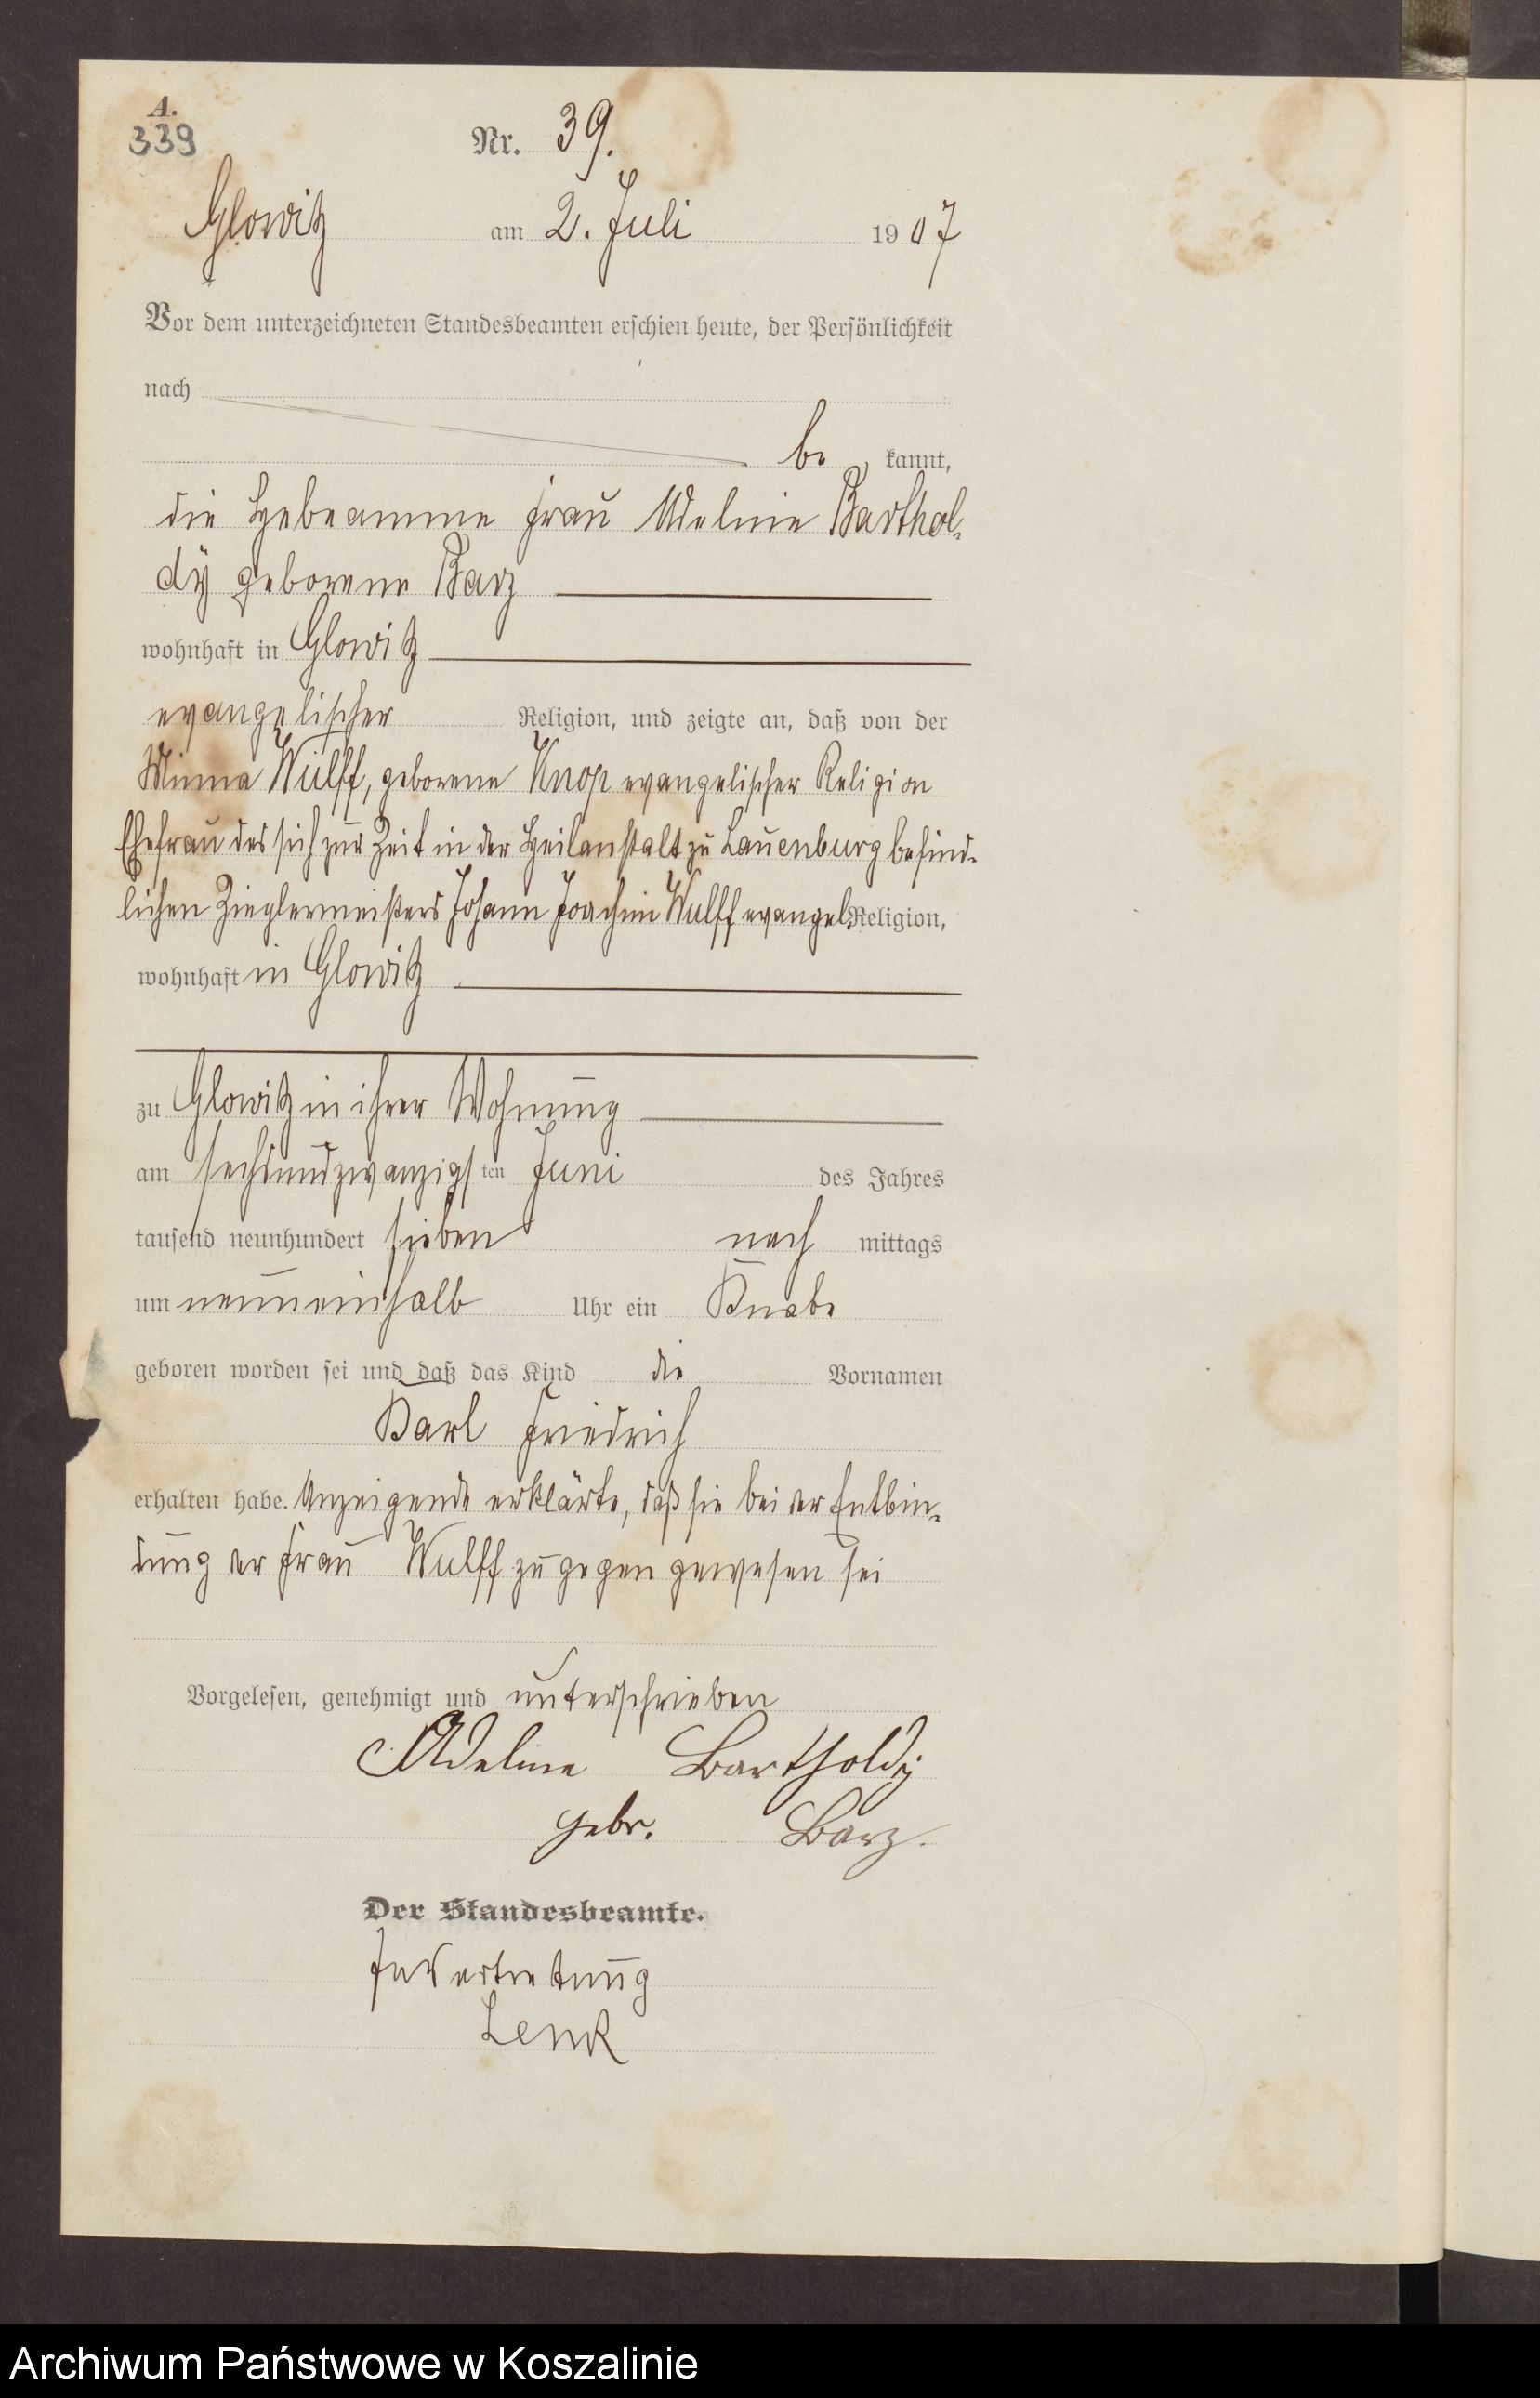 A.
339
Nr. 39.
Glowitz am 2. Juli 1907
Vor dem unterzeichneten Standesbeamten erschien heute, der Persönlichkeit
nach
be kannt,
die Hebeamme Frau Adeline Barthol-
dÿ geborene Barz
wohnhaft in Glowitz
evangelischer Religion, und zeigte an, daß von der
Minna Wulff, geborene Knop evangelischer Religion
Ehefrau des sich zur Zeit in der Heilanstalt zu Lauenburg befind-
lichen Zieglermeisters Johann Joachim Wulff evangel. Religion,
wohnhaft in Glowitz
zu Glowitz in ihrer Wohnung
am sechsundzwanzigsten Juni des Jahres
tausend neunhundert sieben nach mittags
um neuneinhalb Uhr ein Knabe
geboren worden sei und daß das Kind die Vornamen
Karl Friedrich
erhalten habe. Anzeigende erklärte, daß sie bei der Entbin-
dung der Frau Wulff zugegen gewesen sei
Vorgelesen, genehmigt und unterschrieben
Adeline Bartholdÿ
gebr. Barz.
Der Standesbeamte.
In Vertretung
Lenk
Archiwum Państwowe w Koszalinie